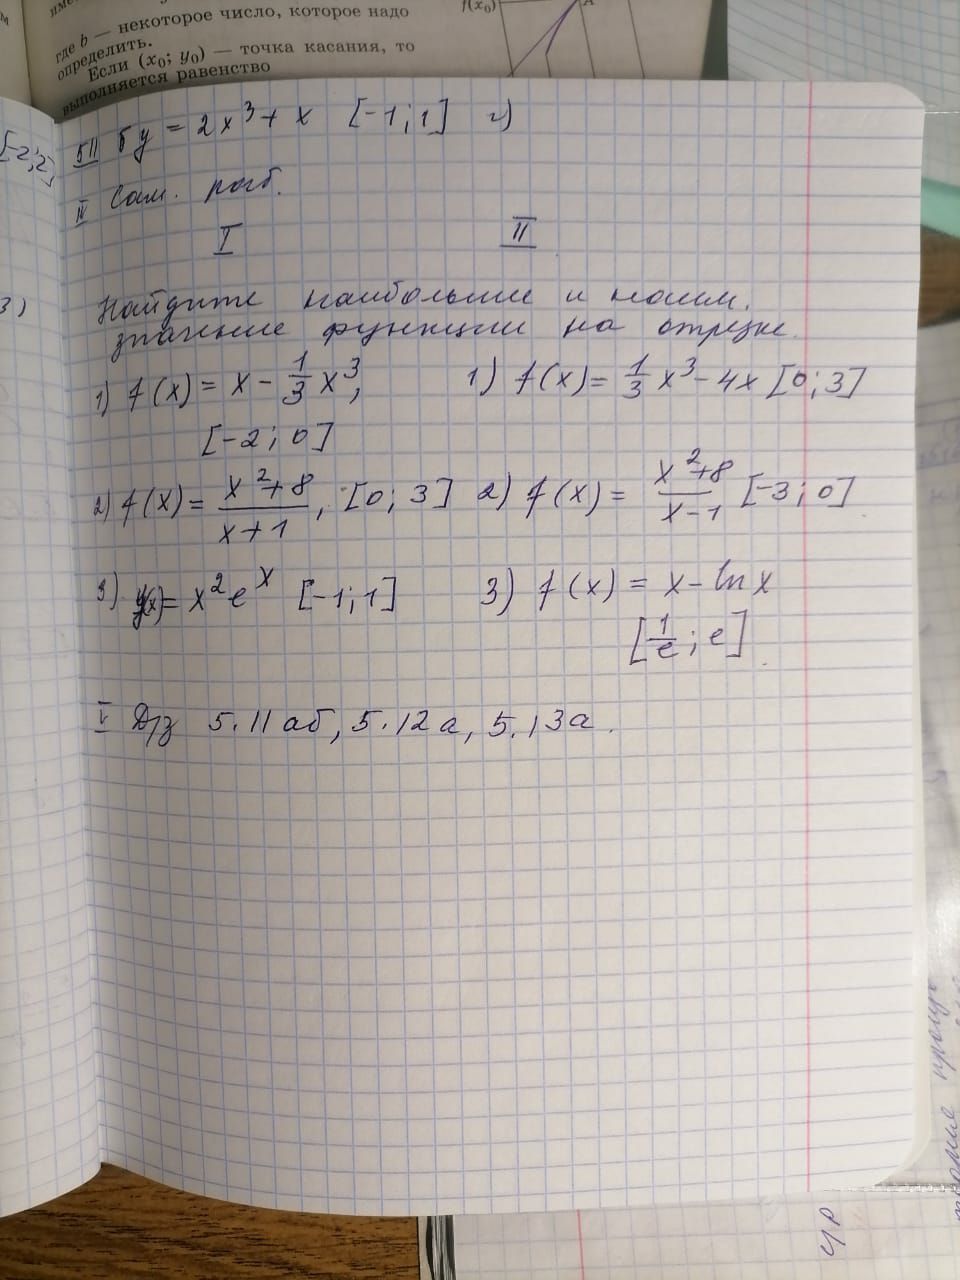 где b — некоторое число, которое надо
определить.
Если (x₀; y₀) — точка касания, то
выполняется равенство
f(x₀)
A
[-2;2]
511 б y = 2x³ + x [-1;1] г)
IV Сам. раб.
I II
3)
Найдите наибольшие и наим.
значение функции на отрезке.
1) f(x) = x - 1/3 x³, 1) f(x) = 1/3 x³ - 4x [0;3]
[-2;0]
2) f(x) = x²+8 / x+1, [0;3] 2) f(x) = x²+8 / x-1 [-3;0]
3) y(x) = x²eˣ [-1;1] 3) f(x) = x - ln x
[1/e; e]
V Д/з 5.11 аб, 5.12а, 5.13а.